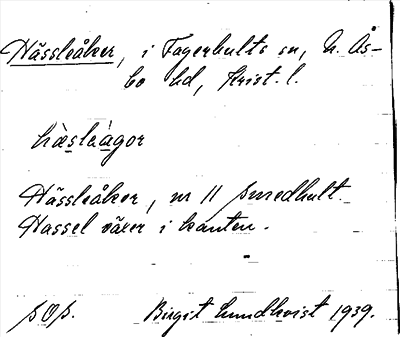 Hässleåker, i Fagerhults sn, N. Ås-
bo hd, Krist. l.
hàsleàgor
Hässleåker, nr 11 Smedhult.
Hassel växer i kanten.
SOS. Birgit Lundkvist 1939.